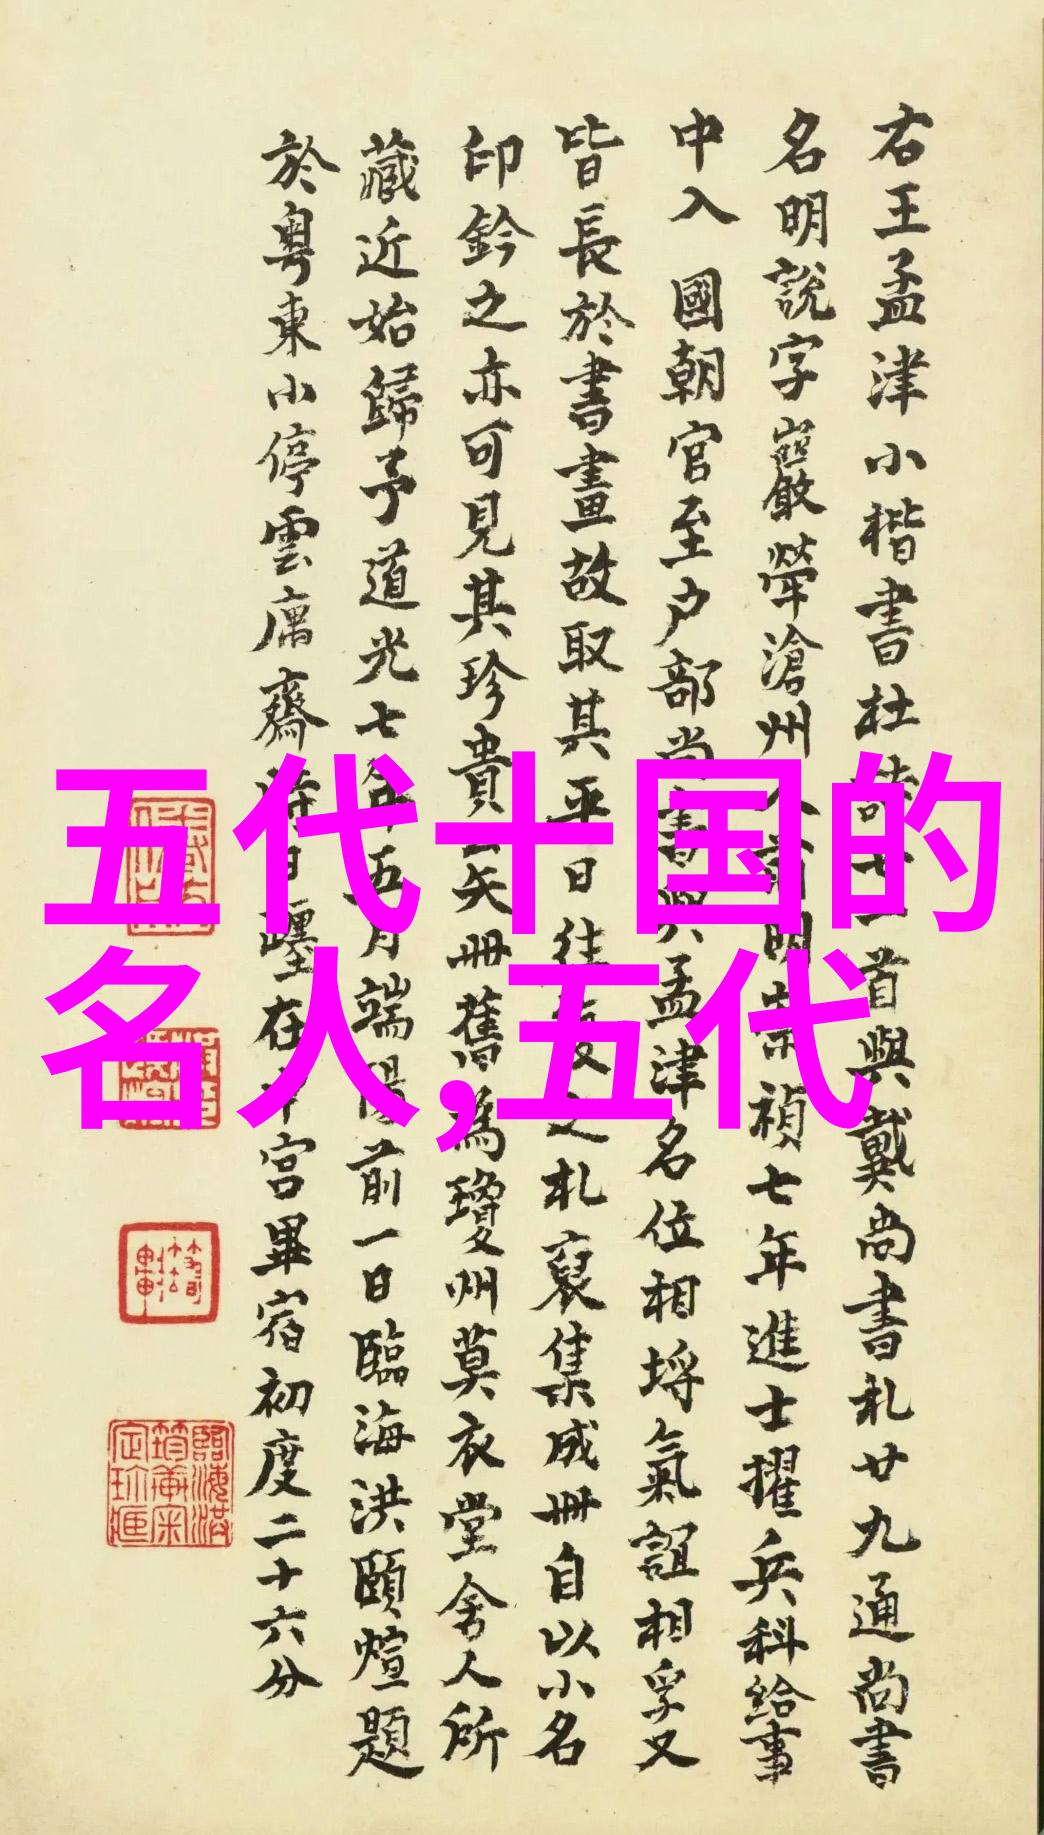 右王孟津小楷書杜詩十一首與戴尚書札廿九通尚書
名明說字巖犖滄州人前明崇禎七年進士擢兵科給事
中入 國朝官至户部尚書與孟津名位相埒氣誼相孚又
皆長於書畫故取其平日往之札裒集成冊自以小名
印鈐之亦可見其珍貴矣冊舊為瓊州莫衣堂舍人所
藏近始歸予道光七年五月端陽前一日臨海洪頤煊題
於粵東小停雲庽齋時日躔在井宮畢宿初度二十六分
五代十国的
名人,五代